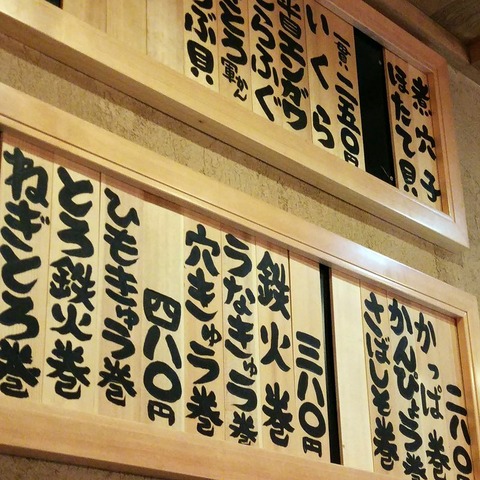 煮穴子
ほたて貝
一貫二五〇円
いくら
とらふぐ
とろ軍かん
つぶ貝
二八〇
かっぱ巻
かんぴょう巻
さばしそ巻
三八〇円
鉄火巻
うなきゅう巻
穴きゅう巻
四八〇円
ひもきゅう巻
とろ鉄火巻
ねぎとろ巻